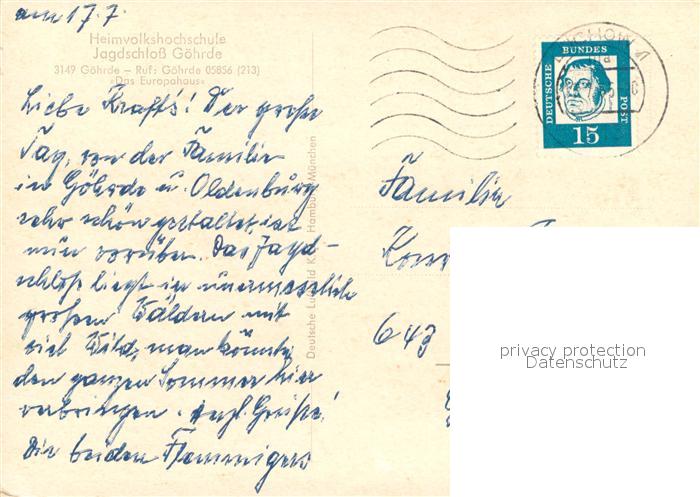 am 17.7.
Heimvolkshochschule
Jagdschloß Göhrde
3149 Göhrde – Ruf: Göhrde 05856 (213)
»Das Europahaus«
Liebe Krafts! Der große
Tag, von der Familie
in Göhrde u. Oldenburg
sehr schön gestaltet, ist
nun vorüber. Das Jagd-
schloß liegt in unermesslich
großen Wäldern mit
viel Wild, man könnte
den ganzen Sommer hier
verbringen. Herzl. Grüße!
Die beiden Flemmigers
Deutsche Luftbild Hamburg München
DEUTSCHE BUNDES POST
15
Familie
643
privacy protection
Datenschutz